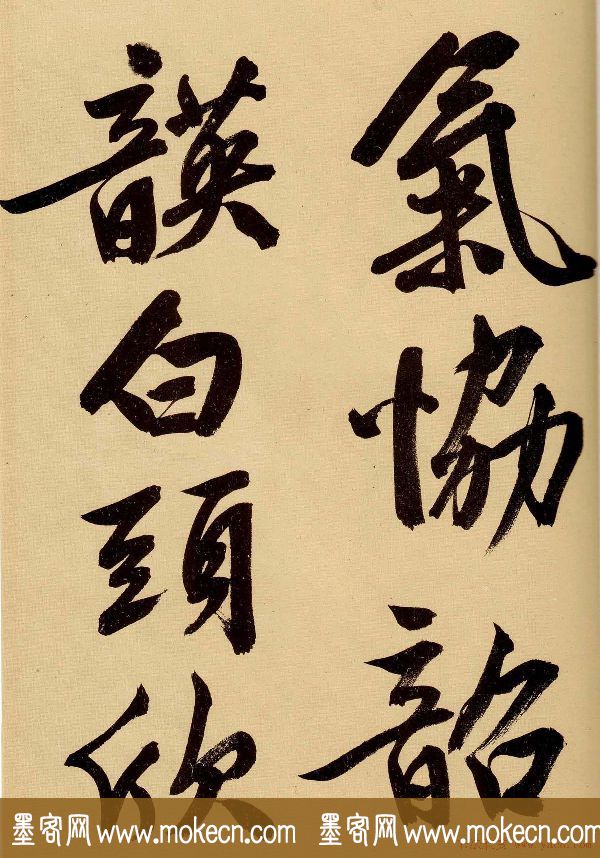 氣協韶
韺白頭欣
墨客网 www.mokecn.com 墨客网 www.mokecn.com